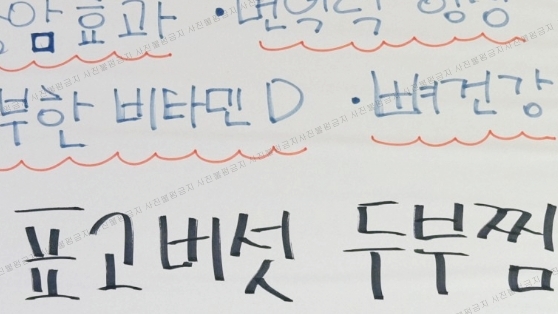 항암효과 · 면역력 향상
부한 비타민D · 뼈건강
표고버섯 두부찜
사진불펌금지 사진불펌금지 사진불펌금지